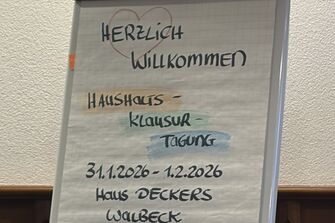 HERZLICH
WILLKOMMEN
HAUSHALTS-
KLAUSUR-
TAGUNG
31.1.2026 - 1.2.2026
HAUS DECKERS
WALBECK